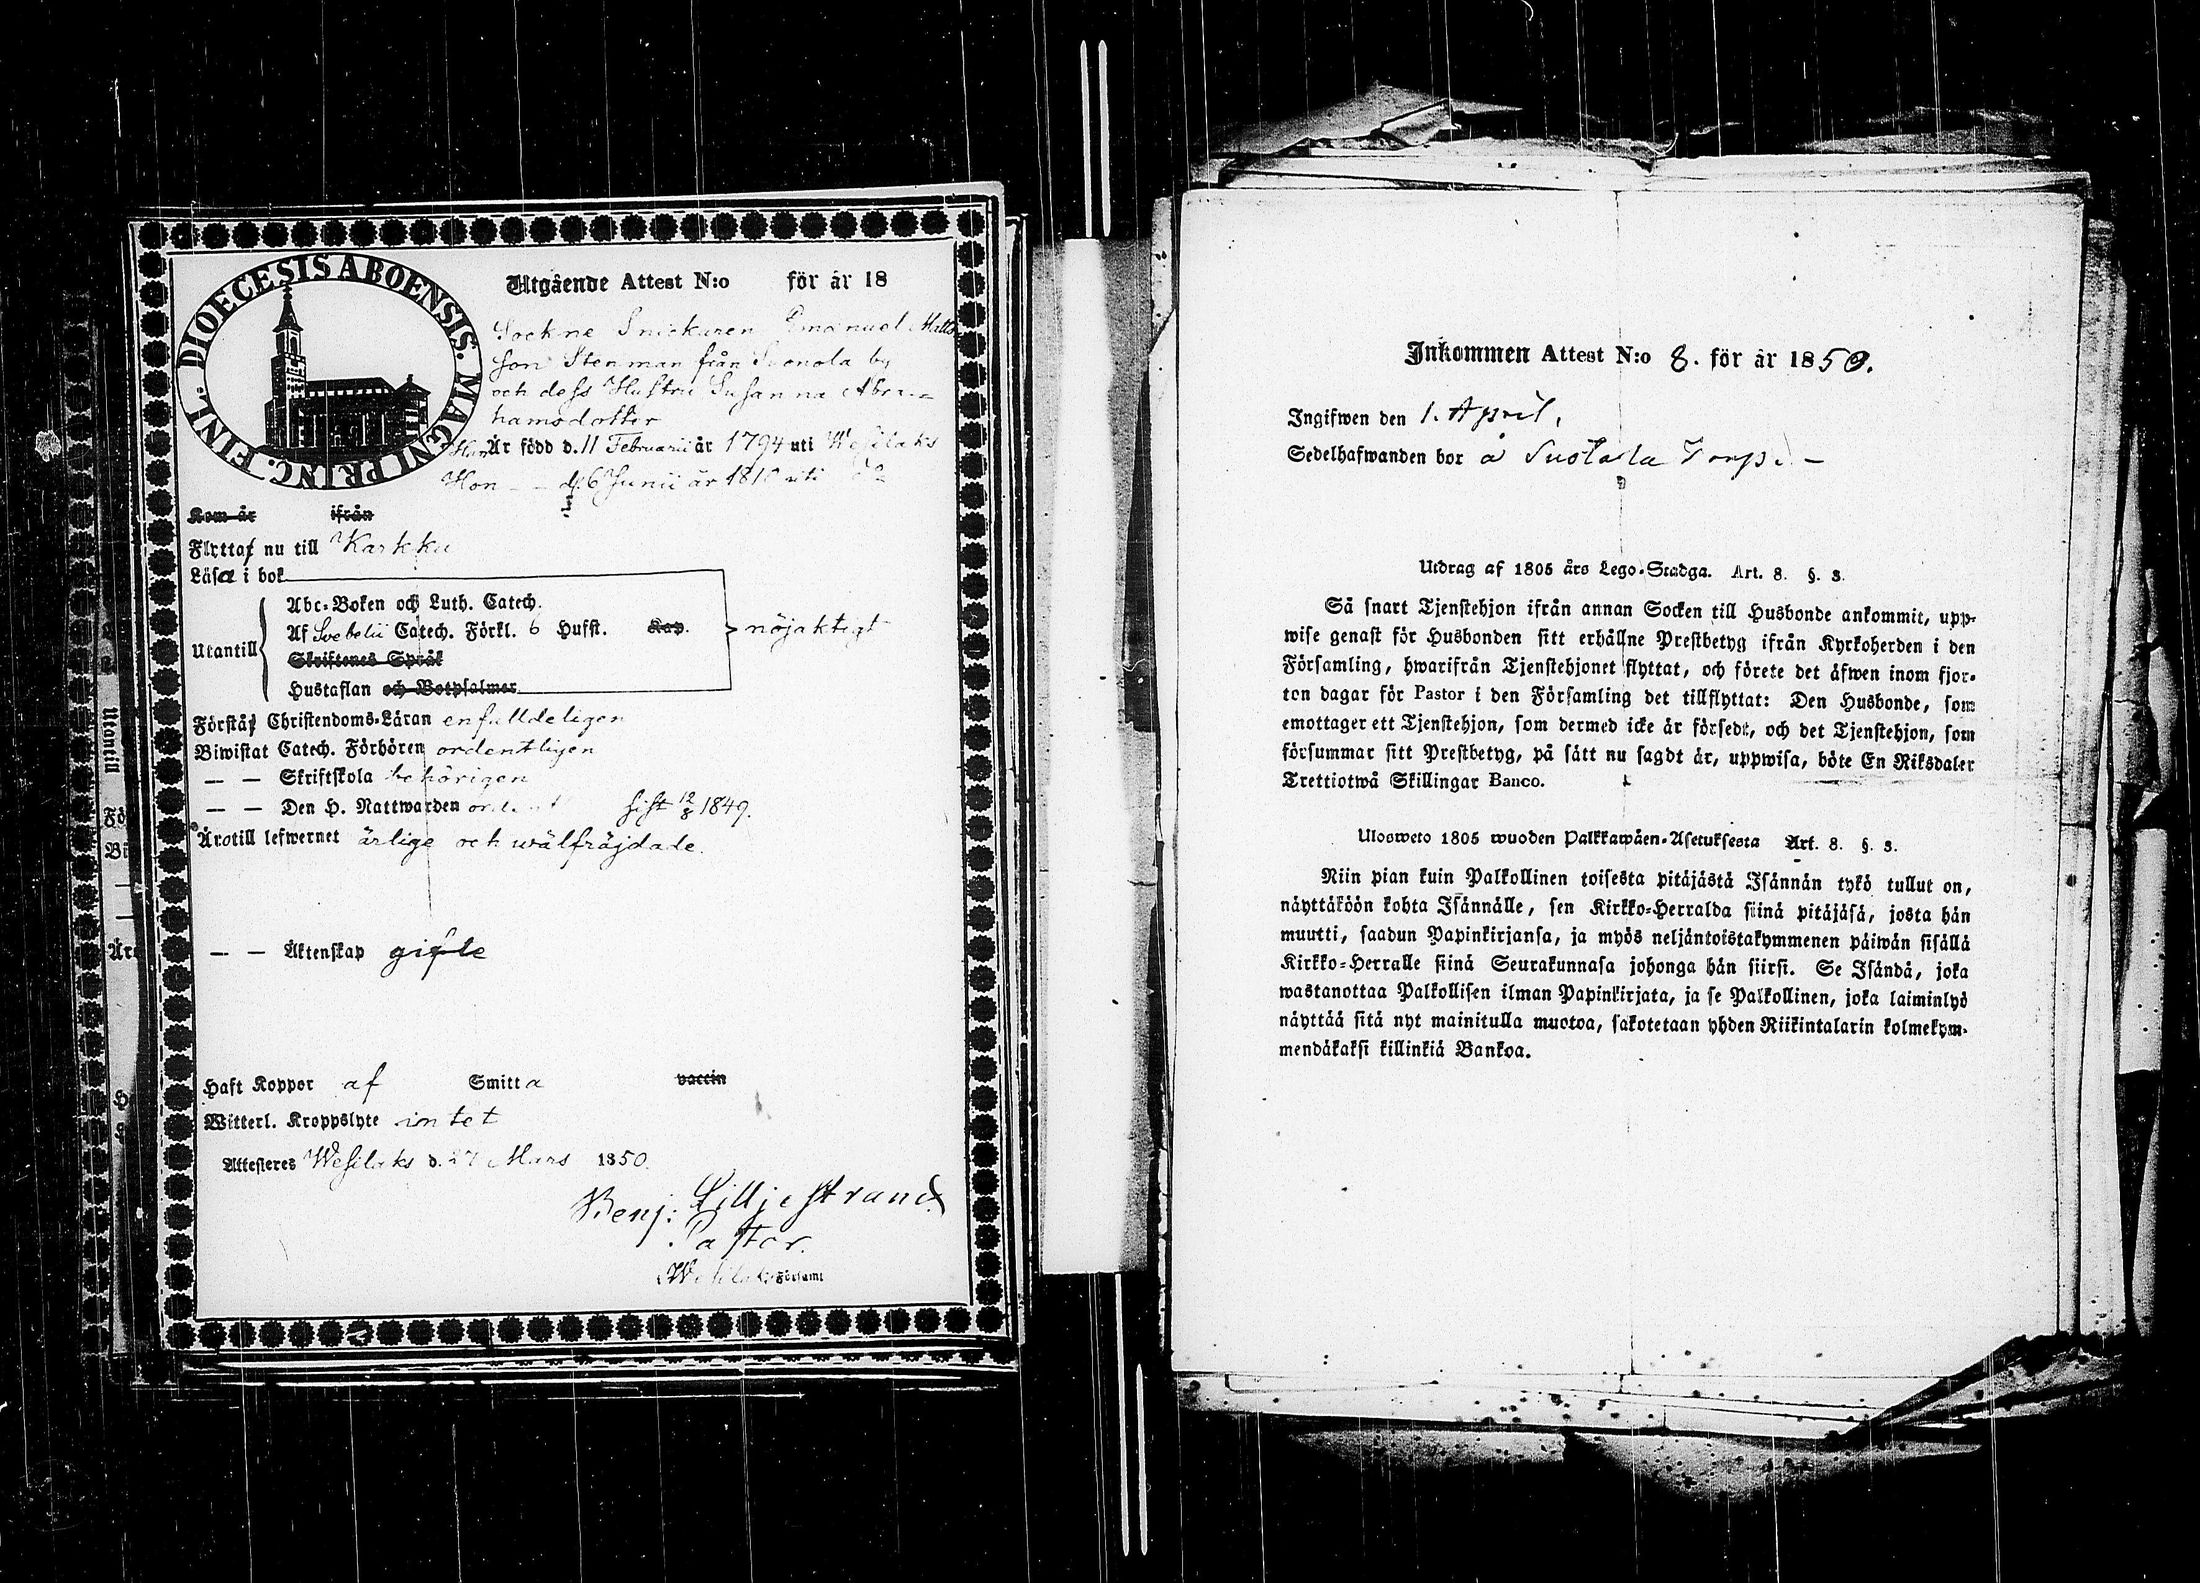 DIOECESIS ABOENSIS. MAGNI PRINC. FINL.
Utgående Attest N:o för år 18
Sockne Snickaren Emanuel Matts
son Stenman från by
och dess Hustru Susanna Abra-
hamsdotter
Han Är född d. 11 Februarii år 1794 uti Wesilaks
Hon - - d. 6 Junii år 1810 uti Do
Kom år ifrån
Flytta nu till Karkku
Läsa i bok
Abc-Boken och Luth. Catech.
Utantill Af Svebelii Catech. Förkl. 6 Hufst. Kap. nöjaktigt
Skriftenes Språk
Hustaflan och Botpsalmer
Förstå Christendoms-Läran enfalldeligen
Biwistat Catech. Förhören ordentligen
— — Skriftskola behörigen
— — Den H. Nattwarden sist 12/8 1849.
Äro till lefwernet ärlige och wälfräjdade.
— — Äktenskap gifte
Haft Koppor af Smitta vaccin
Witterl. Kroppslyte intet
Attesteres Wesilaks d. 27 Mars 1850.
Benj: Lilljestrand.
Pastor.
Wesilaks Församl
Inkommen Attest N:o 8. för år 1850.
Ingifwen den 1. April.
Sedelhafwanden bor å Torp. –
Utdrag af 1805 års Lego-Stadga. Art. 8. §. 3.
Så snart Tjenstehjon ifrån annan Socken till Husbonde ankommit, upp-
wise genast för Husbonden sitt erhållne Prestbetyg ifrån Kyrkoherden i den
Församling, hwarifrån Tjenstehjonet flyttat, och förete det äfwen inom fjor-
ton dagar för Pastor i den Församling det tillflyttat: Den Husbonde, som
emottager ett Tjenstehjon, som dermed icke är försedt, och det Tjenstehjon, som
försummar sitt Prestbetyg, på sätt nu sagdt är, uppwisa, böte En Riksdaler
Trettiotwå Skillingar Banco.
Ulosweto 1805 wuoden Palkkawäen-Asetuksesta Art. 8. §. 3.
Niin pian kuin Palkollinen toisesta pitäjästä Isännän tykö tullut on,
näyttäköön kohta Isännälle, sen Kirkko-Herralda siinä pitäjäsä, josta hän
muutti, saadun Papinkirjansa, ja myös neljäntoistakymmenen päiwän sisällä
Kirkko-Herralle siinä Seurakunnasa johonga hän siirsi. Se Isändä, joka
wastanottaa Palkollisen ilman Papinkirjata, ja se Palkollinen, joka laiminlyö
näyttää sitä nyt mainitulla muotoa, sakotetaan yhden Riikintalarin kolmekym-
mendäkaksi killinkiä Bankoa.